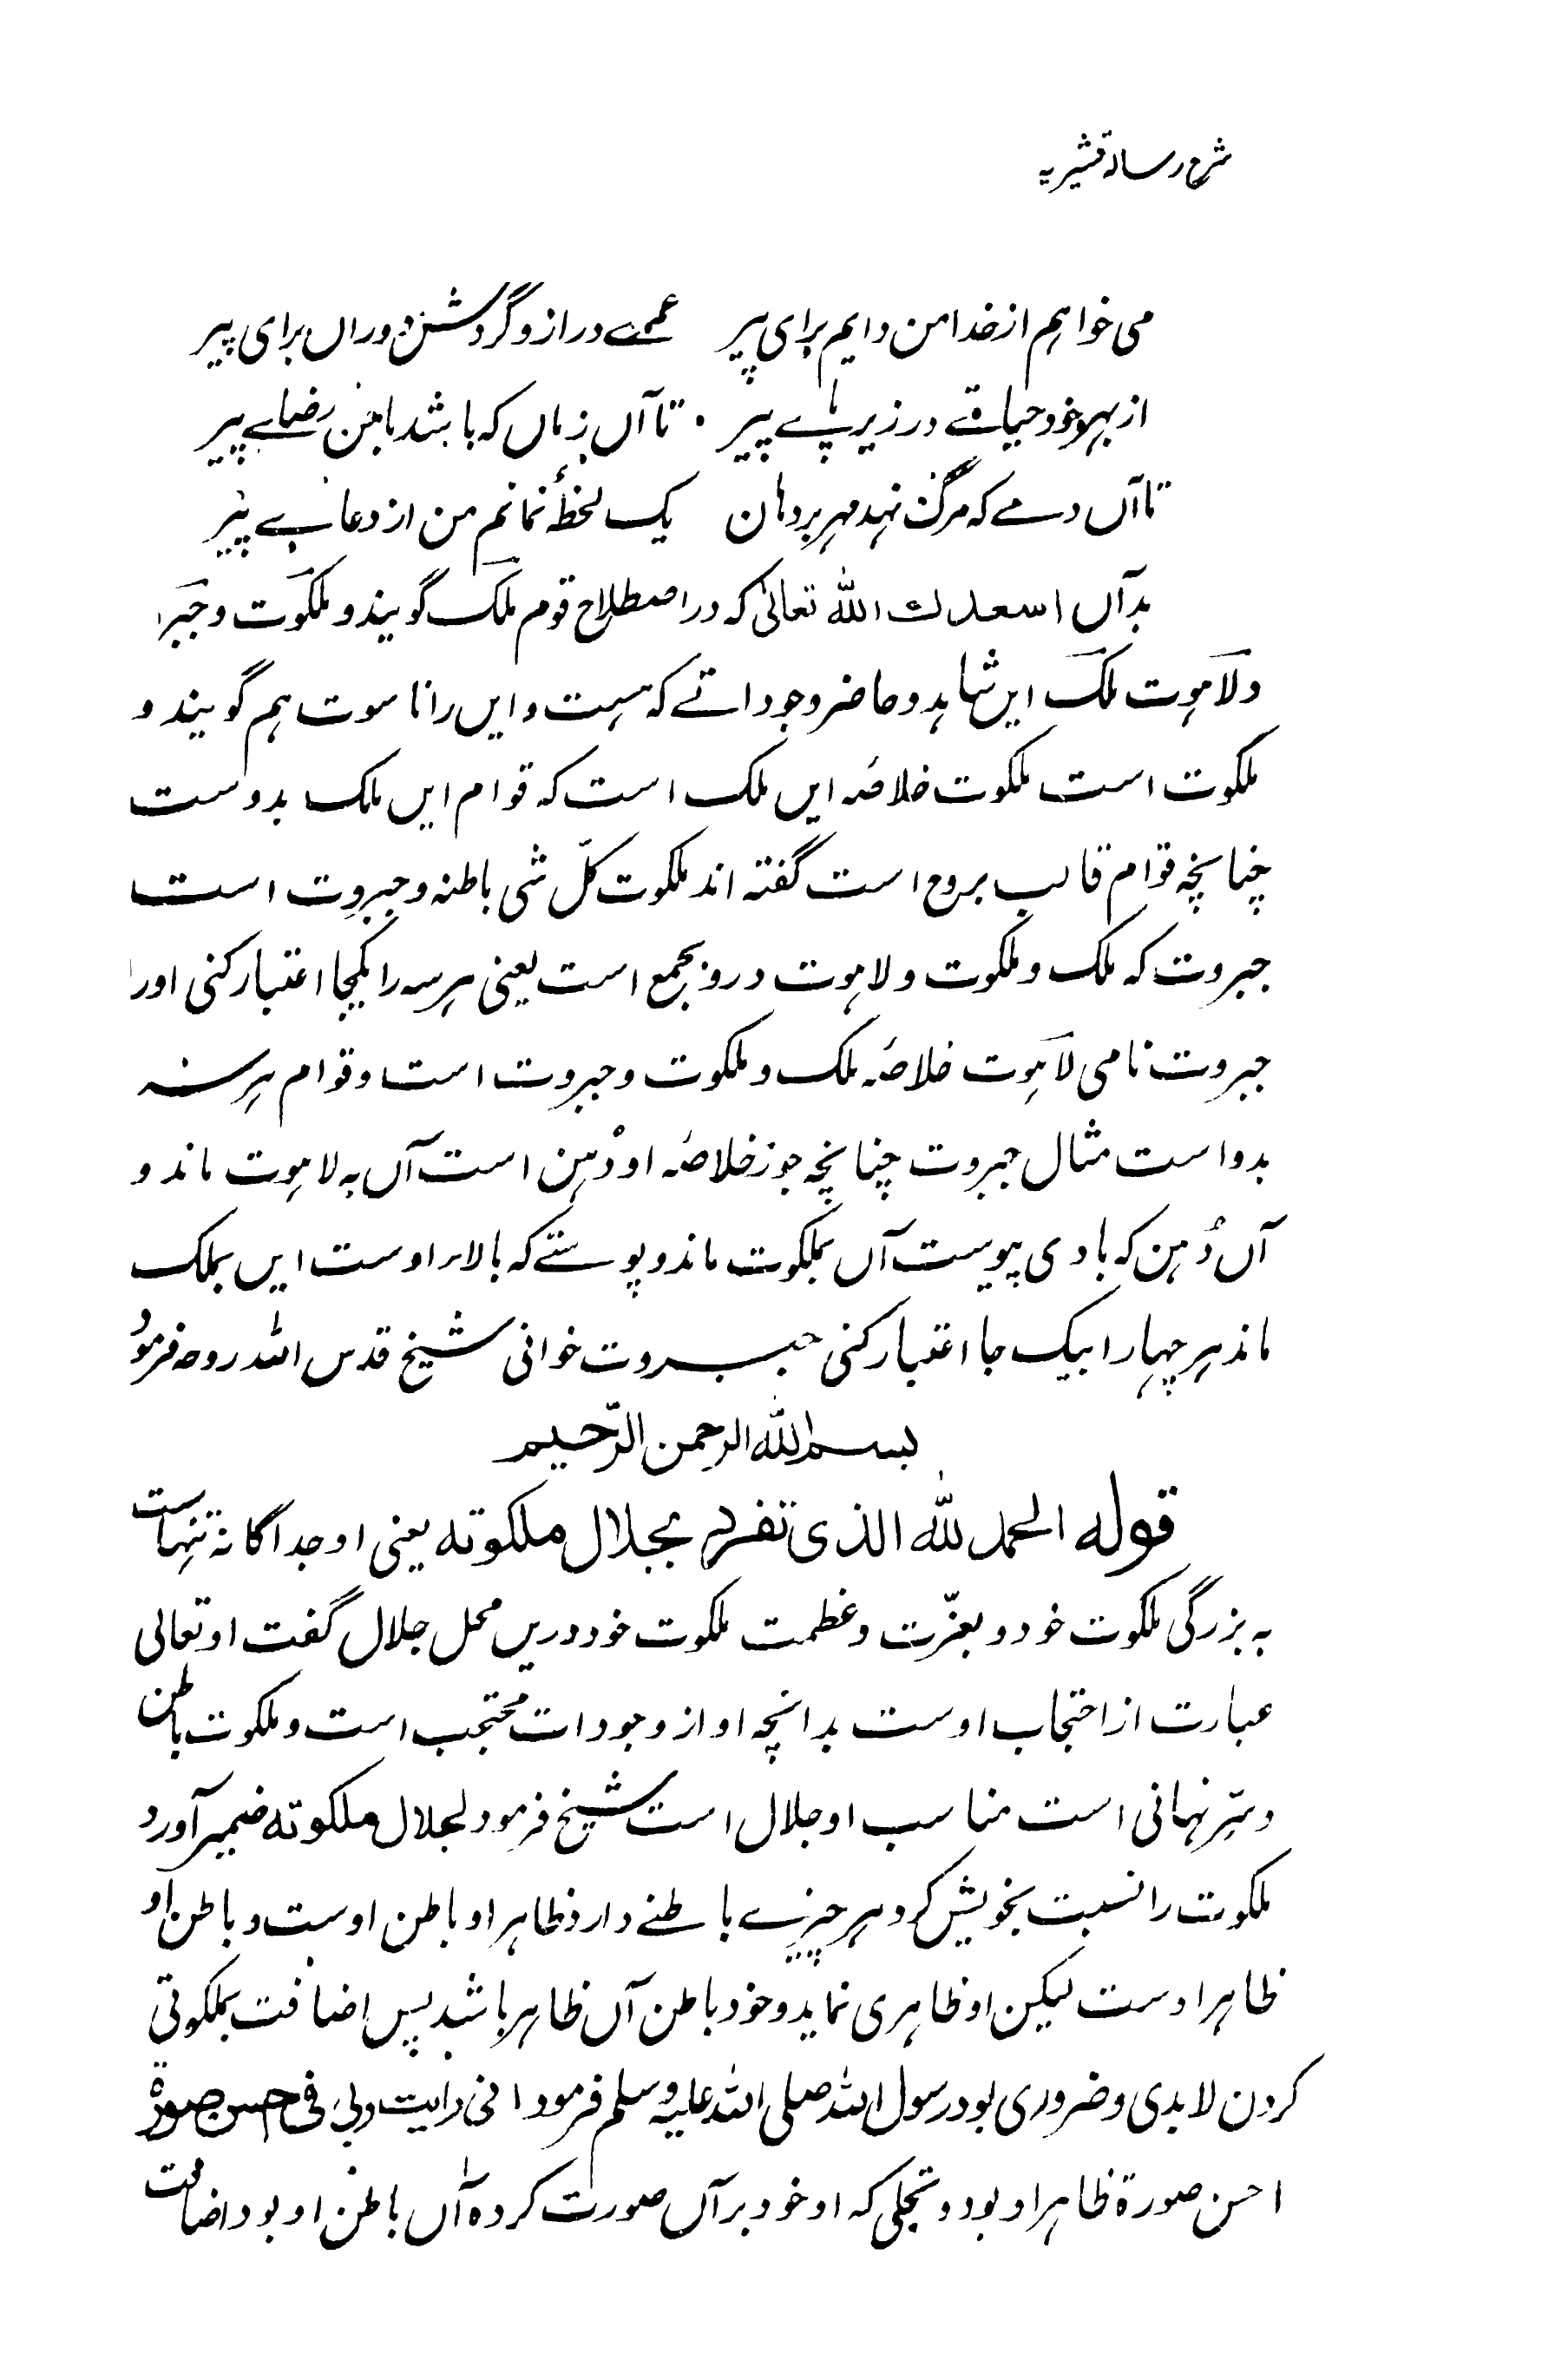 شرح رسالہ قشیریہ
می خواہم از خدا من دایم برای پیر عمرے دراز و گردش دوراں برای پیر
از بہر خود حیاتے در زیر پاے پیر تا آں زماں کہ باشد با من رضاے پیر
تا آں دمے کہ مرگ نہد مہر بردہان یک لحظۂ نمانم من از دعاے پیر
بدآں اسعدك الله تعالیٰ کہ در اصطلاح قوم ملک گویند و ملکوت و جبر
و لاہوت ملک ایں شاہد و حاضر وجوداتے کہ ہست و ایں را ناسوت ہم گویند و
ملکوت است ملکوت خلاصۂ ایں ملک است کہ قوام ایں ملک بدوست
چنانچہ قوام قالب بروح است گفتہ اند ملکوت کلّ شی باطنہ و جبروت است
جبروت کہ ملک و ملکوت و لاہوت درو بجمع است یعنی ہرسہ را یکجا اعتبار کنی اورا
جبروت نامی لاہوت خلاصۂ ملک و ملکوت و جبروت است و قوام ہرسہ
بدو است مثال جبروت چنانچہ جوز خلاصۂ او دُہن است آں بہ لاہوت ماند و
آں دُہن کہ بادی پیوست آں بملکوت ماند و پوستے کہ بالاے اوست ایں بملک
ماند ہر چہار را بیک جا اعتبار کنی جبروت خوانی شیخ قدس اللہ روحہ فرمود
بسم الله الرحمن الرّحیم
قوله الحمد لله الذی تفرد بجلال ملکوته یعنی او جداگانہ تنہاست
بہ بزرگی ملکوت خود و بعزّت و عظمت ملکوت خود دریں محل جلال گفت او تعالی
عبارت از احتجاب اوست بدانچہ او از وجودات محتجب است و ملکوت باطن
و سِرّ نہانی است مناسب او جلال است شیخ فرمود لجلال ملکوته ضمیر آورد
ملکوت را نسبت بخویش کرد ہر چیزے باطنے دارد ظاہر او باطن اوست و باطن او
ظاہر اوست لیکن او ظاہری نماید و خود باطن آں ظاہر باشد پس اضافت بملکوتی
کردن لابدی و ضروری بود رسول اللہ صلی اللہ علیہ وسلم فرمود انی رایت ربی فی احسن صورة
احسن صورة ظاہر او بود و تجلی کہ او خود برآں صورت کردہ آں باطن او بود اضافت